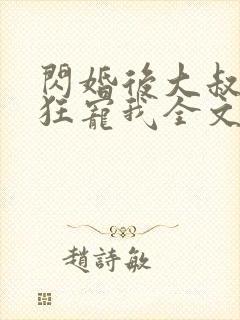 閃婚後大叔
狂寵我全文
趙詩敏